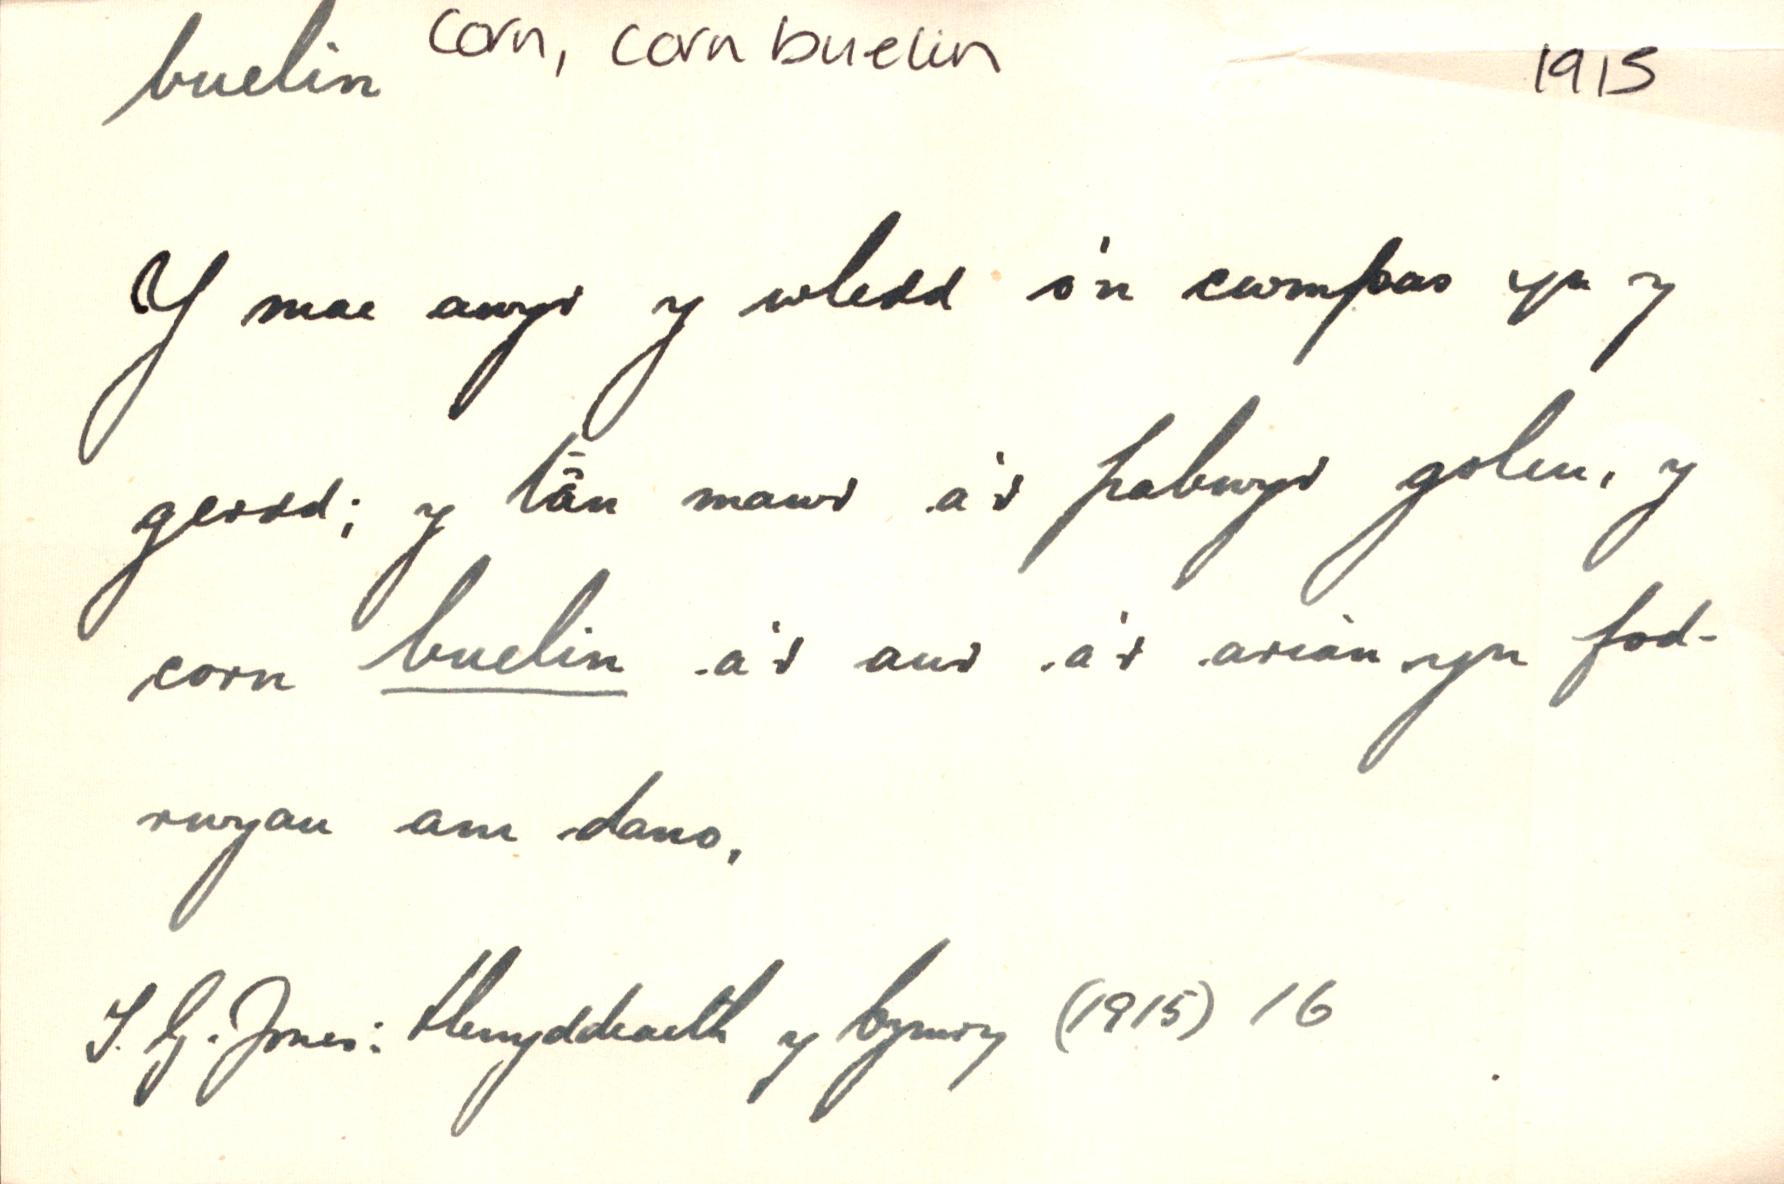 buelin corn, corn buelin 1915
Y mae awyr y wledd o'n cwmpas yn y
gerdd; y tân mawr a'r pabwyr goleu, y
corn buelin a'r aur a'r arian yn fod-
rwyau am dano.
T. G. Jones: Llenyddiaeth y Cymry (1915) 16